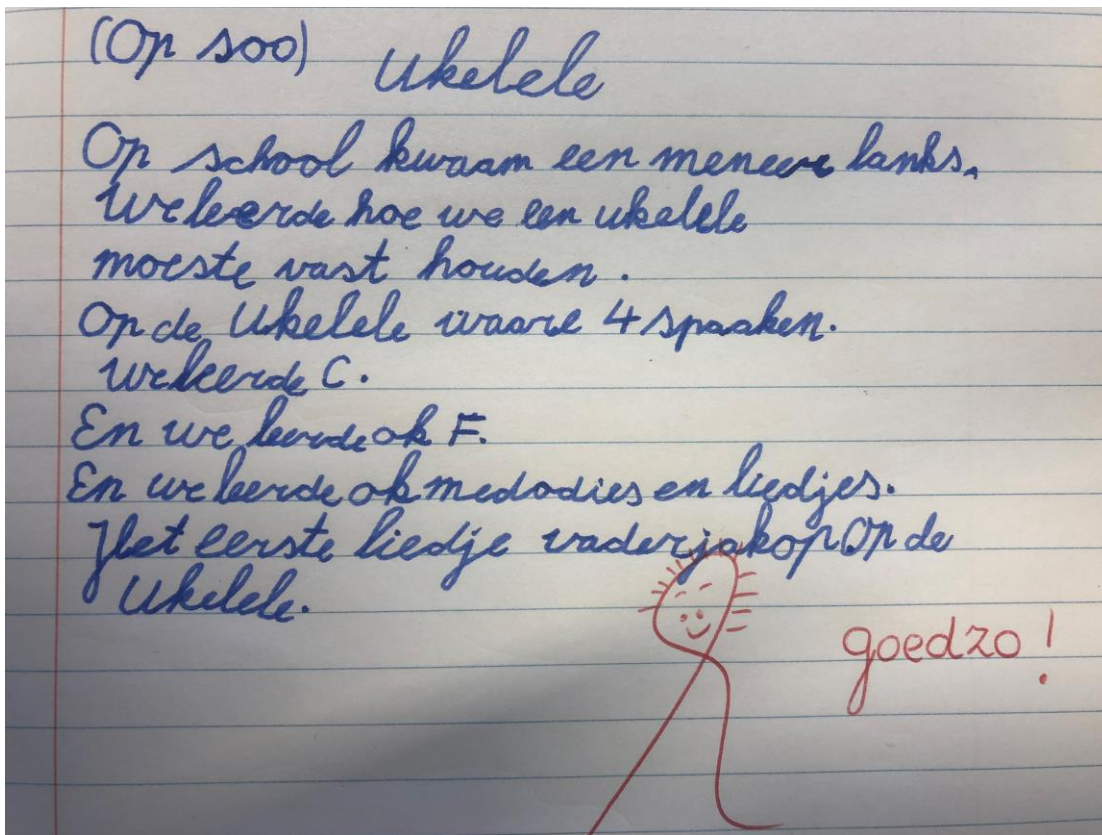 (Op soo)
Ukelele
Op school kwaam een meneer lanks.
We leerde hoe we een ukelele
moeste vast houden.
Op de Ukelele waare 4 spaaken.
We leerde C.
En we leerde ok F.
En we leerde ok medodies en liedjes.
Het eerste liedje vader jakop Op de
Ukelele.
goedzo!